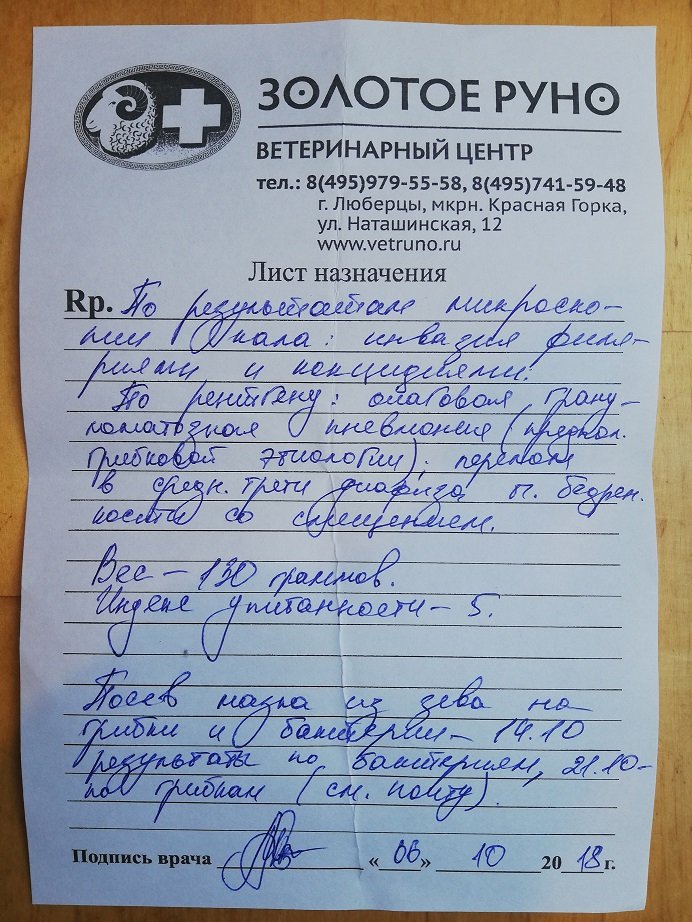 ЗОЛОТОЕ РУНО
ВЕТЕРИНАРНЫЙ ЦЕНТР
тел.: 8(495)979-55-58, 8(495)741-59-48
г. Люберцы, мкрн. Красная Горка,
ул. Наташинская, 12
www.vetruno.ru
Лист назначения
Rp. По результатам микроско-
пии кала: инвазия филя-
риями и кокцидиями.
По рентгену: очаговая грану-
ломатозная пневмония (предпол.
грибковой этиологии); перелом
в средн. трети диафиза п. бедрен.
кости со смещением.
Вес – 130 граммов.
Индекс упитанности – 5.
Посев мазка из зева на
грибки и бактерии – 14.10
результаты по бактериям, 21.10 –
по грибкам (см. почту).
Подпись врача «06» 10 2018 г.